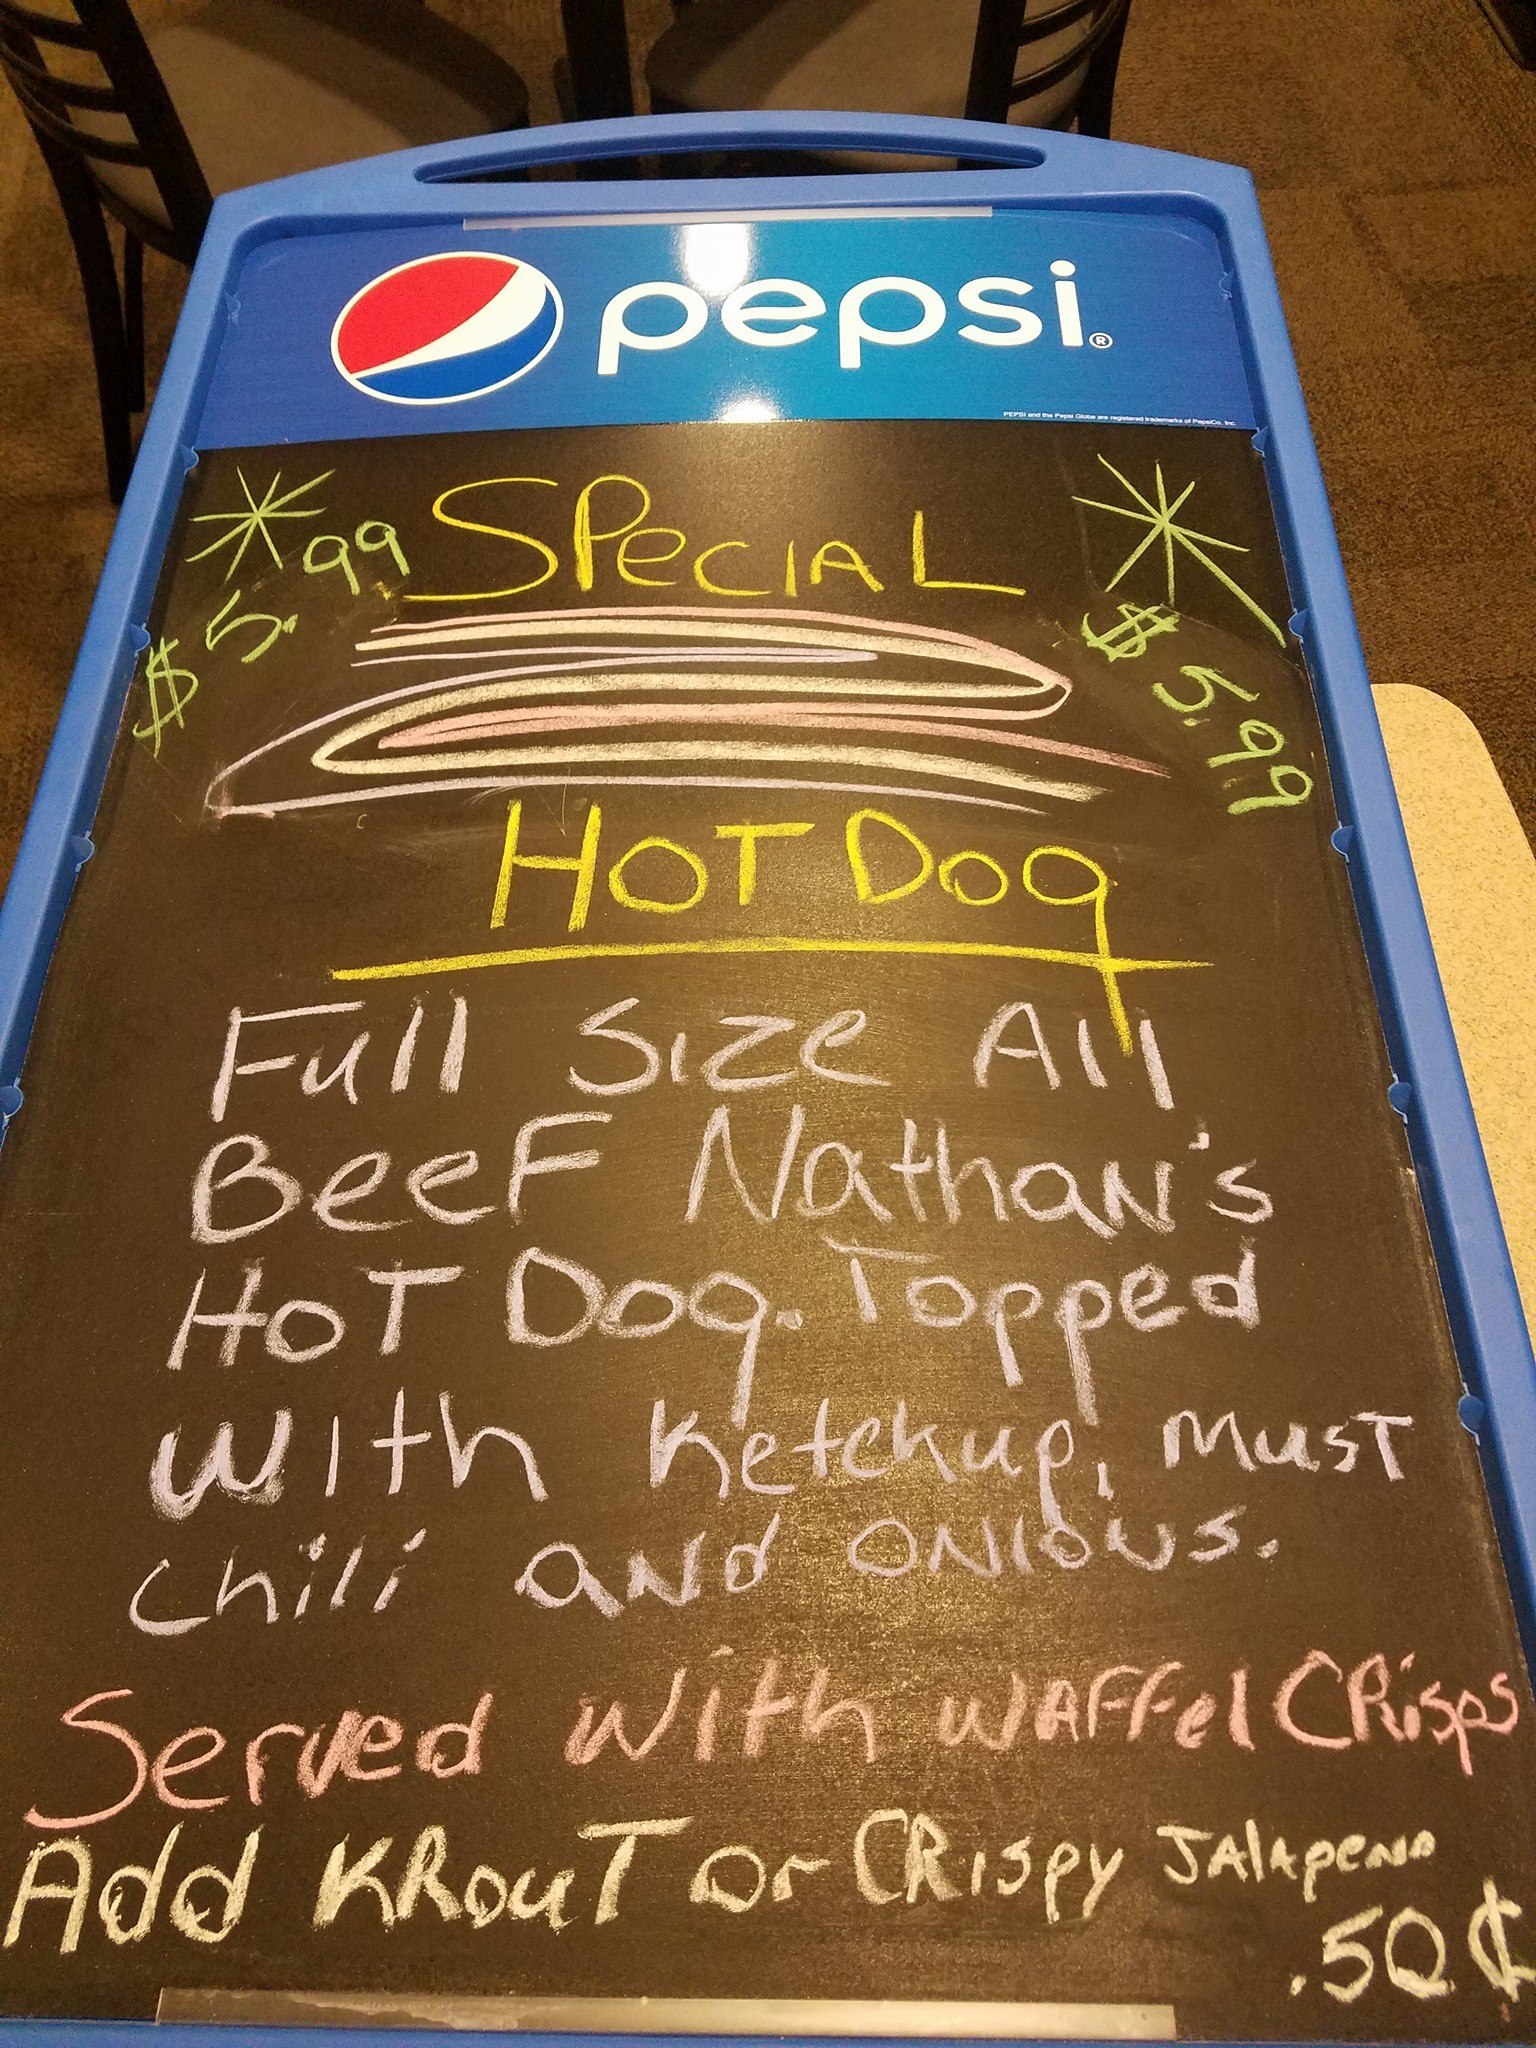 pepsi®
PEPSI and the Pepsi Globe are registered trademarks of PepsiCo, Inc.
SPeCIAL
$5.99
$5.99
HOT DOg
Full SIZe All
BeeF Nathan's
HOT DOg. Topped
WITh Ketchup, MusT
Chili and ONIONS.
Served With WAFFel CRisps
Add KRouT or CRispy JAlApeno
.50¢